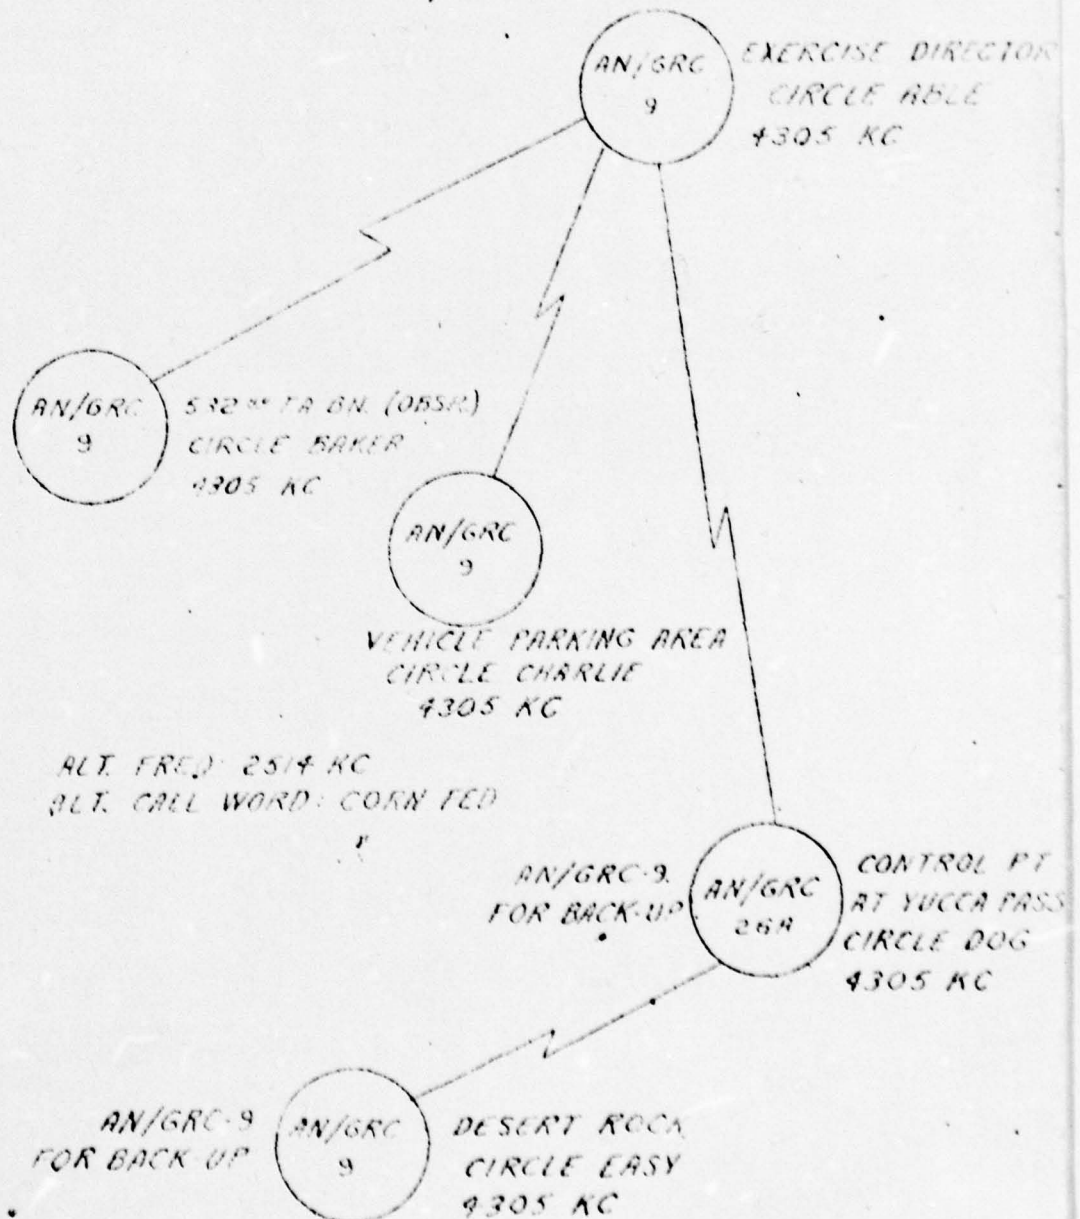 AN/GRC
9
EXERCISE DIRECTOR
CIRCLE ABLE
4305 KC
AN/GRC
9
532 FA BN. (OBSR.)
CIRCLE BAKER
4305 KC
AN/GRC
9
VEHICLE PARKING AREA
CIRCLE CHARLIE
4305 KC
ALT. FREQ: 2514 KC
ALT. CALL WORD: CORN FED
AN/GRC-9
FOR BACK-UP
AN/GRC
26A
CONTROL PT
AT YUCCA PASS
CIRCLE DOG
4305 KC
AN/GRC-9
FOR BACK-UP
AN/GRC
9
DESERT ROCK
CIRCLE EASY
4305 KC